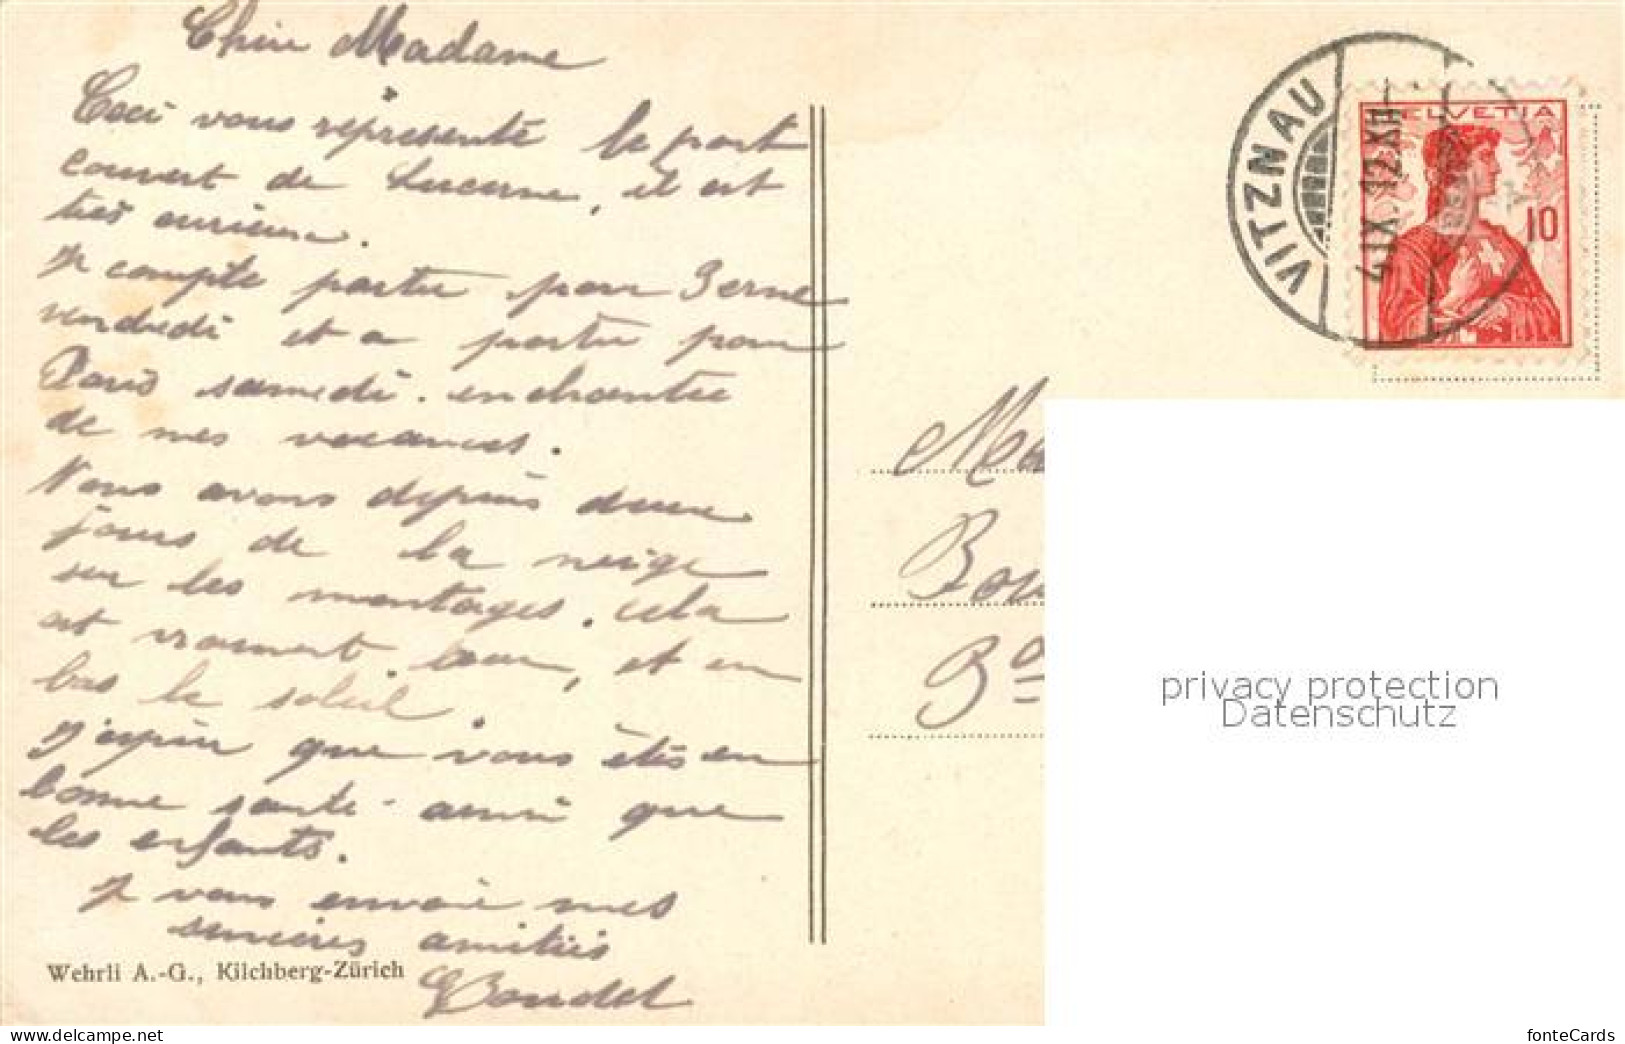 Chère Madame
Ceci vous représente le pont
couvert de Lucerne, il est
très curieux.
Je compte partir pour Berne
vendredi et a partir pour
Paris samedi. enchantée
de mes vacances.
Nous avons depuis deux
jours de la neige
sur les montages. cela
est vraiment beau, et en
bas le soleil.
J'espère que vous êtes en
bonne santé. ainsi que
les enfants.
Je vous envoie mes
sincères amitiés
Wehrli A.-G., Kilchberg-Zürich
VITZNAU
4.IX.12.XII-
HELVETIA
10
Ma
Bou
Bd
privacy protection
Datenschutz
fonteCards